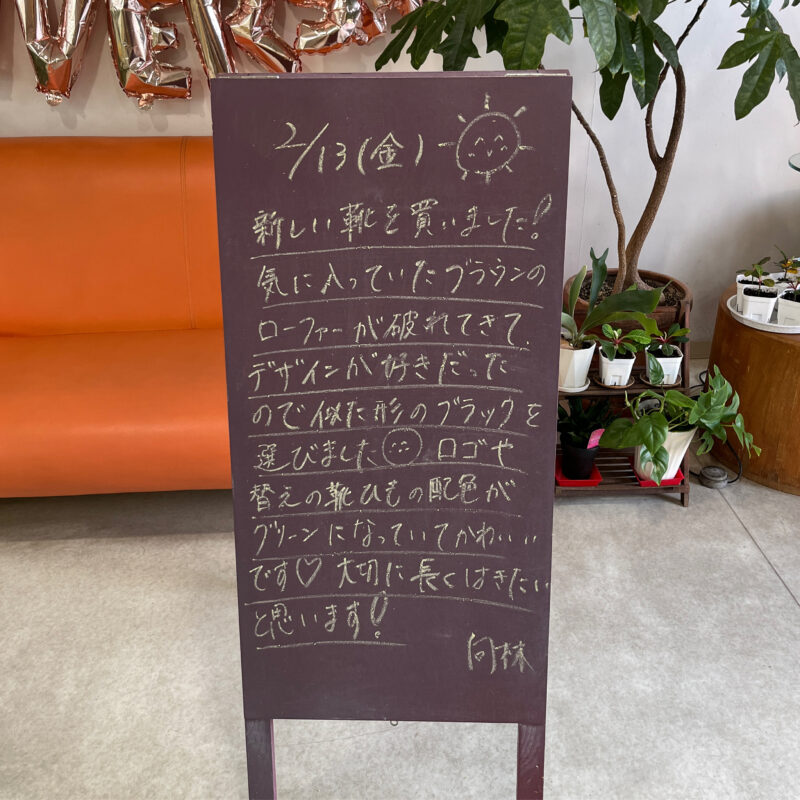 2/13(金)
新しい靴を買いました!
気に入っていたブラウンの
ローファーが破れてきて、
デザインが好きだった
ので似た形のブラックを
選びました ロゴや
替えの靴ひもの配色が
グリーンになっていてかわいい
です♡ 大切に長くはきたい
と思います!
向林